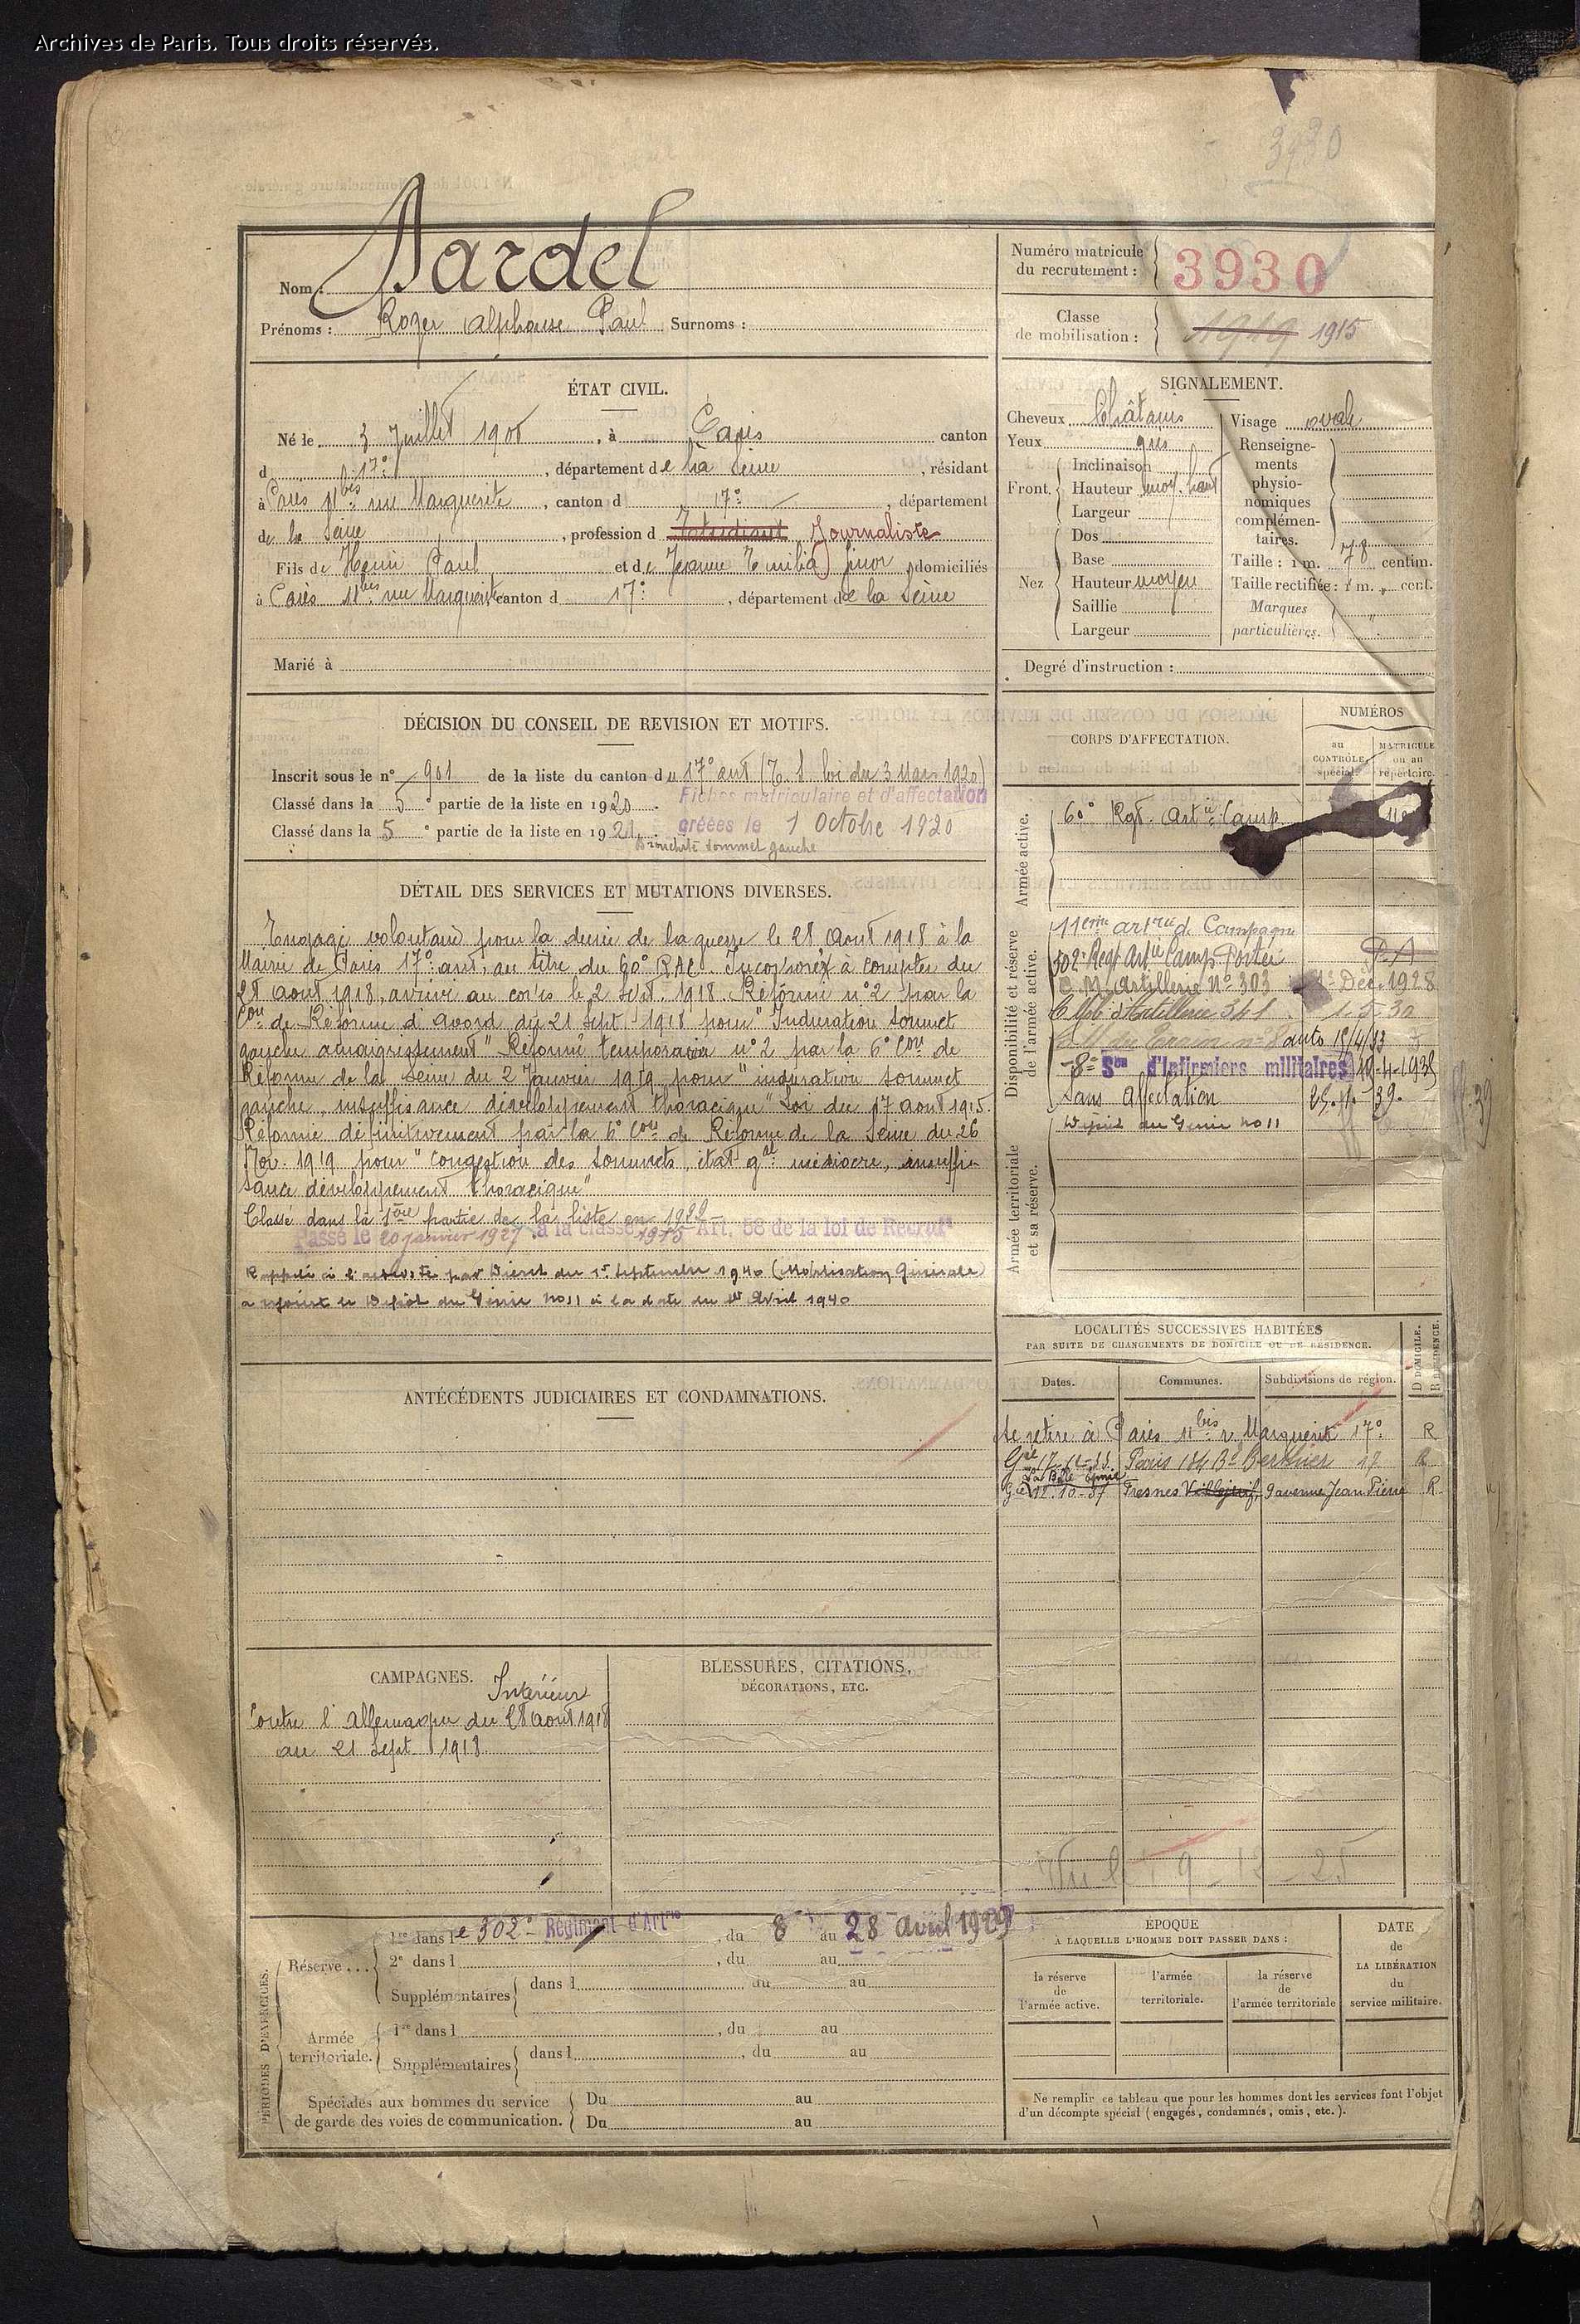 Archives de Paris. Tous droits réservés.
3930
Nom : Dardel
Prénoms : Roger Alphonse Paul Surnoms :
Numéro matricule du recrutement : 3930
Classe de mobilisation : 1919 1915
ÉTAT CIVIL.
Né le 3 Juillet 1900, à Paris canton
d 17e, département de la Seine, résidant
à Paris 11bis rue Marguerite, canton d 17e, département
de la Seine, profession d Etudiant Journaliste
Fils de Henri Paul et de Jeanne Emilia domiciliés
à Paris 11bis rue Marguerite canton d 17e, département de la Seine
Marié à
SIGNALEMENT.
Cheveux Châtains
Yeux gris
Front. Inclinaison
Hauteur moy. haut
Largeur
Nez Dos
Base
Hauteur moyen
Saillie
Largeur
Visage ovale
Renseignements physionomiques complémentaires.
Taille : 1 m. 78 centim.
Taille rectifiée : 1 m. „ cent.
Marques particulières.
Degré d'instruction :
DÉCISION DU CONSEIL DE REVISION ET MOTIFS.
Inscrit sous le n° 901 de la liste du canton du 17e art (E. S. loi du 3 Mars 1920)
Classé dans la 5e partie de la liste en 1920. Fiches matriculaire et d'affectation
Classé dans la 5e partie de la liste en 1921. créées le 1 Octobre 1920
Bronchite sommet gauche
DÉTAIL DES SERVICES ET MUTATIONS DIVERSES.
Engagé volontaire pour la durée de la guerre le 28 Août 1918 à la
Mairie de Paris 17e arrt, au titre du 60e RAC. Incorporé à compter du
28 août 1918, arrivé au corps le 2 Sept. 1918. Réformé n°2 par la
Con de Réforme d'Avord du 21 Sept. 1918 pour "Induration sommet
gauche amaigrissement" Réformé temporaire n°2 par la 6e Con de
Réforme de la Seine du 2 Janvier 1919 pour "induration sommet
gauche, insuffisance développement thoracique" Loi du 17 août 1915.
Réformé définitivement par la 6e Con de Réforme de la Seine du 26
Nov. 1919 pour "congestion des sommets, état gal médiocre, insuffi-
sance développement thoracique"
Classé dans la 1ère partie de la liste en 1922
Passé le 20 janvier 1927 à la classe 1915 Art. 58 de la loi de Recrutt
Rappelé à l'activité par Décret du 1er Septembre 1940 (Mobilisation Générale)
a rejoint le Dépôt du Génie No 11 à la date du 1er Avril 1940
CORPS D'AFFECTATION.
NUMÉROS
au CONTRÔLE spécial.
MATRICULE ou au répertoire.
Armée active.
60e Rgt. Artie Camp.
Disponibilité et réserve de l'armée active.
11eme artrie d. Campagne
302e Regt Artie Camp. Portée
C. M. Artillerie N° 303 1er Déc. 1928
C. Mob. d'Artillerie 341 1.5.30
auto 15/4/33
8e Son d'Infirmiers militaires
Sans Affectation
Armée territoriale et sa réserve.
Dépôt du Génie No 11
ANTÉCÉDENTS JUDICIAIRES ET CONDAMNATIONS.
LOCALITÉS SUCCESSIVES HABITÉES
PAR SUITE DE CHANGEMENTS DE DOMICILE OU DE RÉSIDENCE.
Dates. Communes. Subdivisions de région. D DOMICILE. R RÉSIDENCE.
Se retire à Paris 11bis r. Marguerite 17e R
Paris 184 Bd Berthier 17 R
12.10.37 Fresnes Villejuif, 9 avenue Jean Pierre R
CAMPAGNES.
Intérieur
Contre l'Allemagne du 28 Août 1918
au 21 Sept. 1918.
BLESSURES, CITATIONS,
DÉCORATIONS, ETC.
Vu le 9-12-25
PÉRIODES D'EXERCICES.
Réserve... 1re dans le 302e Régiment d'Artrie, du 8 au 28 Avril 1929
2e dans l , du au
Supplémentaires dans l du au
Armée territoriale. 1re dans l , du au
Supplémentaires dans l , du au
Spéciales aux hommes du service Du au
de garde des voies de communication. Du au
ÉPOQUE
À LAQUELLE L'HOMME DOIT PASSER DANS :
la réserve de l'armée active.
l'armée territoriale.
la réserve de l'armée territoriale
DATE de LA LIBÉRATION du service militaire.
Ne remplir ce tableau que pour les hommes dont les services font l'objet
d'un décompte spécial (engagés, condamnés, omis, etc.).